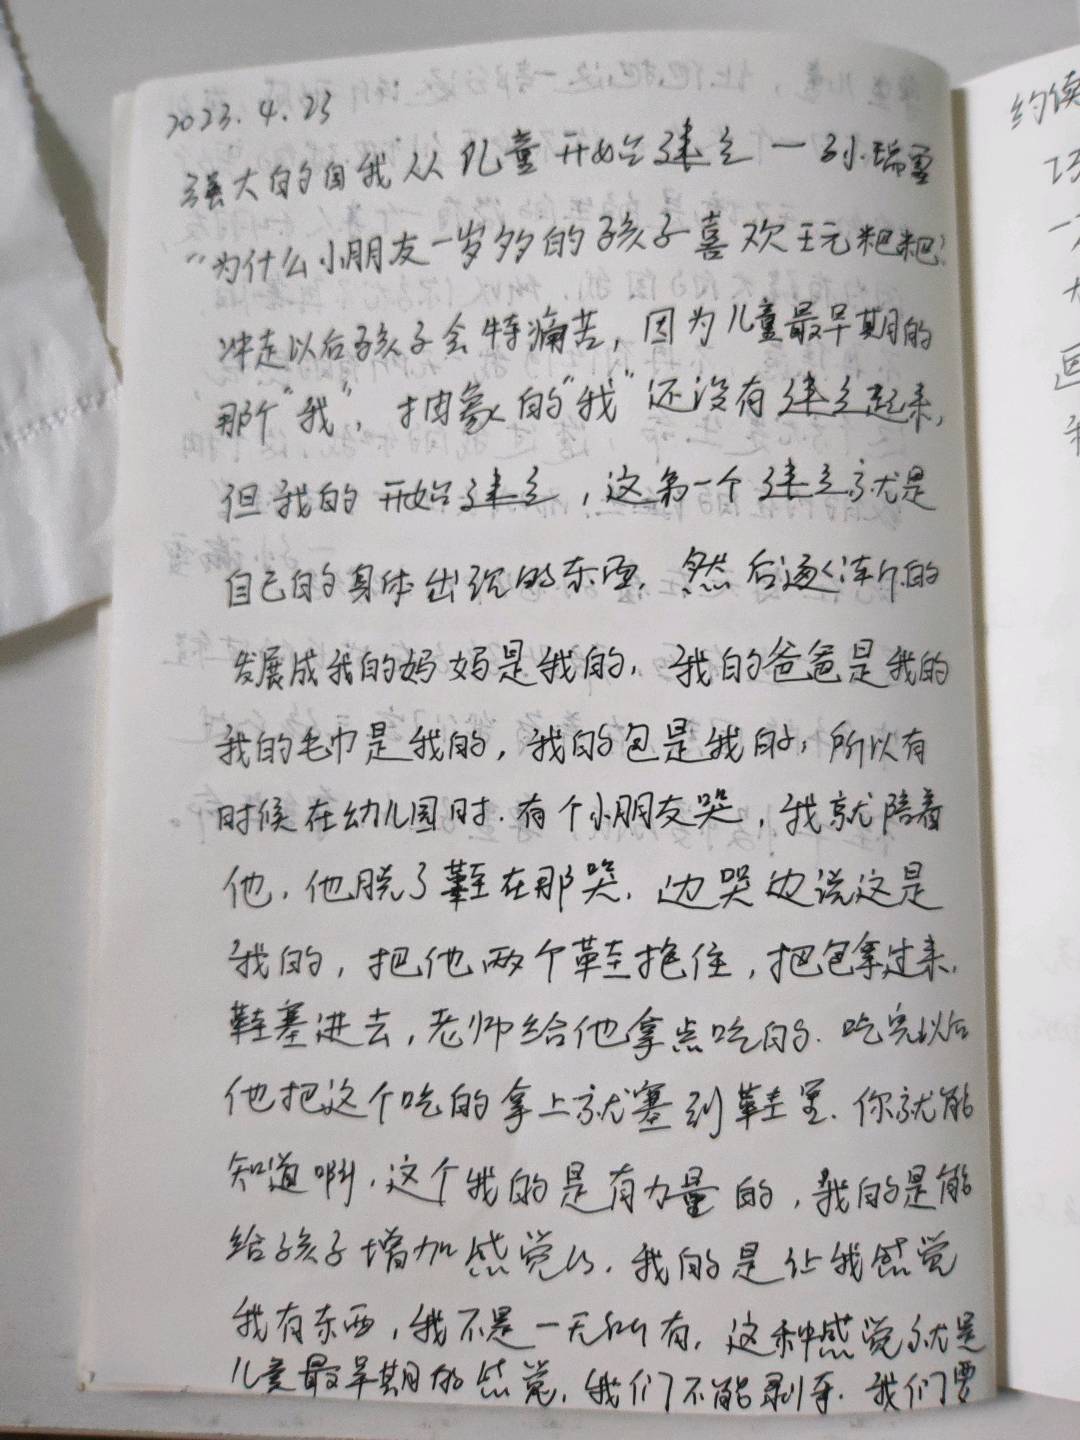 2023.4.23
强大的自我从儿童开始建立一孙瑞雪
"为什么小朋友一岁多的孩子喜欢玩粑粑?
冲走以后孩子会特痛苦,因为儿童最早期的
那个"我",抽象的"我"还没有建立起来,
但我的开始建立,这第一个建立就是
自己的身体出现的东西.然后逐渐的
发展成我的妈妈是我的,我的爸爸是我的
我的毛巾是我的,我的包是我的,所以有
时候在幼儿园时.有个小朋友哭,我就陪着
他,他脱了鞋在那哭.边哭边说这是
我的,把他两个鞋抱住,把包拿过来,
鞋塞进去,老师给他拿点吃的.吃完以后
他把这个吃的拿上就塞到鞋里.你就能
知道啊,这个我的是有力量的,我的是能
给孩子增加感觉的.我的是让我感觉
我有东西,我不是一无所有,这种感觉就是
儿童最早期的感觉,我们不能剥夺.我们要
约读